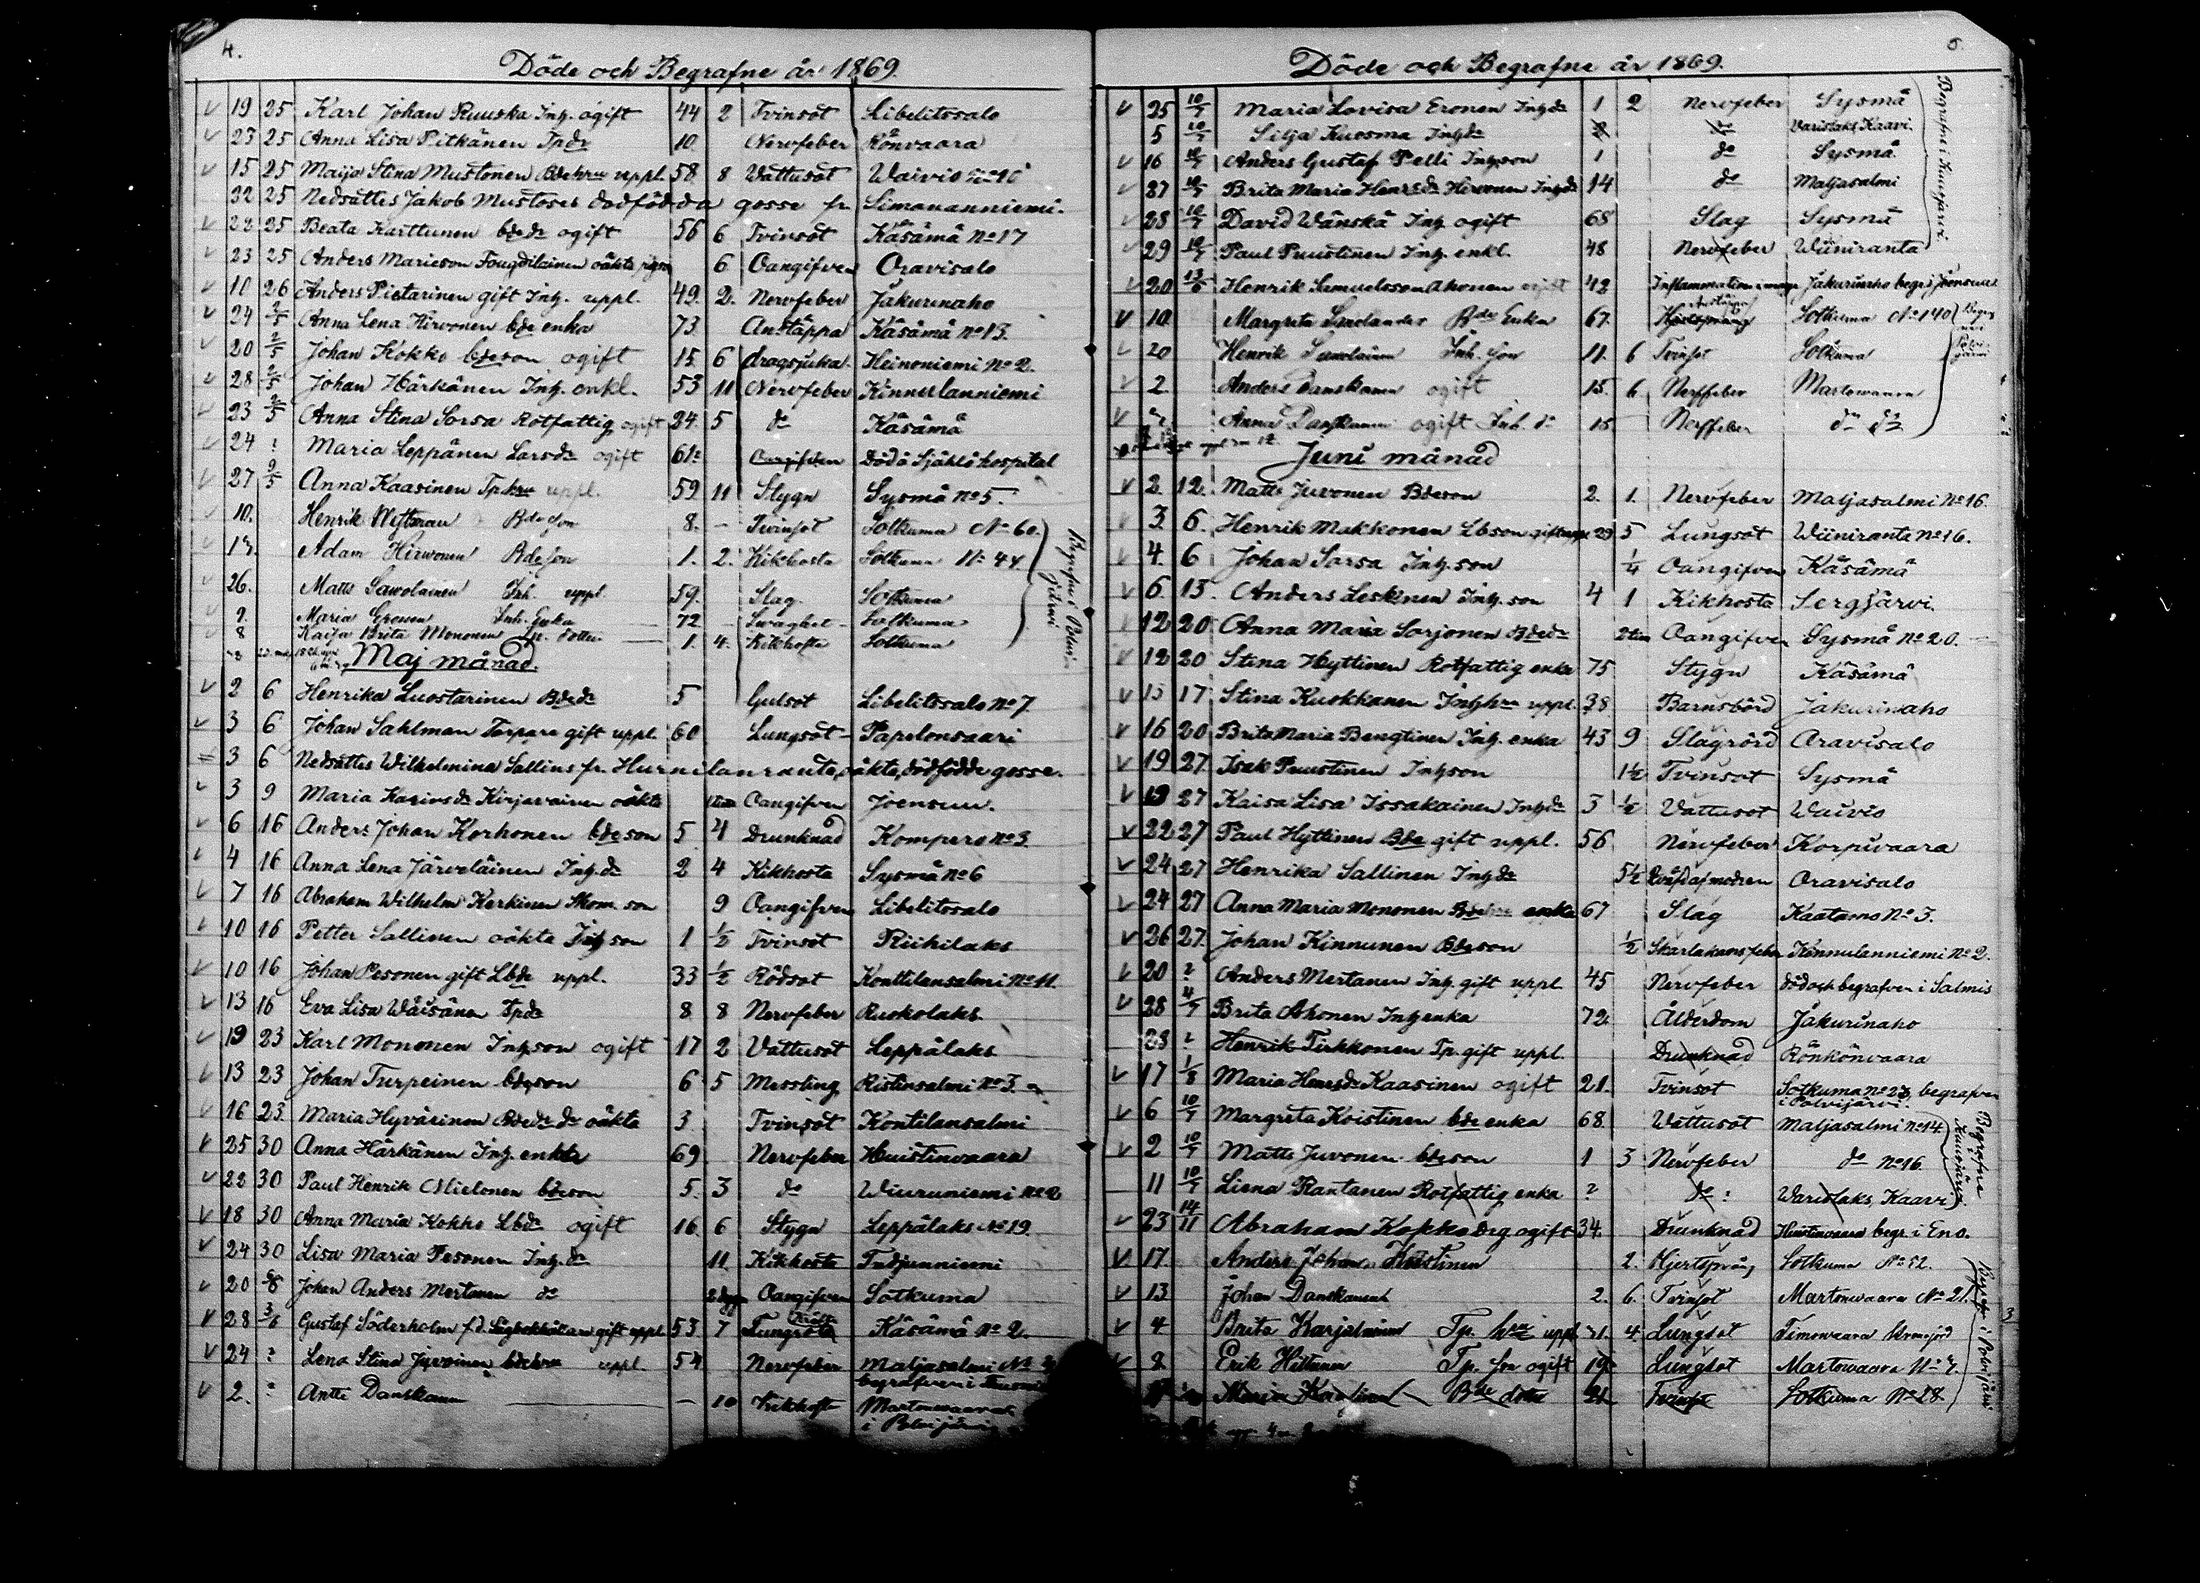 4.
Döde och Begrafne år 1869.
19 25 Karl Johan Ruuska Inh. ogift 44 2 Tvinsot Libelitssalo
23 25 Anna Lisa Pitkänen Tpdr 10 Nervfeber Rönvaara
15 25 Maija Stina Mustonen Bdehru uppl. 58 8 Vattusot Waivio No 10
22 25 Nedsättes Jakob Mustoses dödfödda gosse fr. Simananniemi.
22 25 Beata Karttunen bdedr ogift 56 6 Tvinsot Käsämä No 17
23 25 Anders Marieson Fougdilainen oäkta 6 Oangifven Oravisalo
10 26 Anders Pietarinen gift Inh. uppl. 49. 2. Nervfeber Jakurinaho
24 2/5 Anna Lena Hirvonen bde enka 73 Andtäppa Käsämä No 13.
20 2/5 Johan Kokko bdeson ogift 15 6 dragsjuka Heinoniemi No 2.
28 2/5 Johan Härkänen Inh. enkl. 53 11 Nervfeber Kinnulanniemi
23 2/5 Anna Stina Sorsa Rotfattig ogift 24 5 do Käsämä
24 ? Maria Leppänen Larsdr ogift 61 Oangifven Död å Själö hospital
27 9/5 Anna Kaasinen Tphru uppl. 59 11 Stygn Sysmä No 5.
10. Henrik Bde Son 8. - Tvinsot Sotkuma No 60.
Adam Hirvonen Bde Son 1. 2. Kikhosta Sotkuma No 44.
26. Matts Sawolainen Inh. uppl. 59. Slag Sotkuma
9. Maria Eronen Inh. Enka 72 Svaghet Sotkuma
8 Kaija Brita Mononen Tp. dotter 1. 4. Kikhosta Sotkuma
Begrafne i Polvijärvi
Maj månad.
2 6 Henrika Luostarinen Bdedr 5 Gulsot Libelitssalo No 7
3 6 Johan Sahlman Torpare gift uppl. 60 Lungsot Papelonsaari
3 6 Nedsättes Wilhelmina Sallins fr. oäkta, dödfödde gosse.
3 9 Maria Karinsdr Kirjavainen oäkta Oangifven Joensuu.
6 16 Anders Johan Korhonen bdeson 5 4 Drunknad Kompero No 3
4 16 Anna Lena Järveläinen Inh.dr 2 4 Kikhosta Sysmä No 6
7 16 Abraham Wilhelm Kerkinen Skom. son 9 Oangifven Libelitssalo
10 16 Petter Sallinen oäkta Inh son 1 1/2 Tvinsot Riihilaks
10 16 Johan Pesonen gift Lbde uppl. 33 1/2 Rödsot Konttilansalmi No 11.
13 16 Eva Lisa Wäisänen Tpdr 8 8 Nervfeber Ruokolaks
19 23 Karl Mononen Inhson ogift 17 2 Vattusot Leppälaks
13 23 Johan Turpeinen bdeson 6 5 Messling Ristinsalmi No 3
16 23. Maria Hyvärinen Bdedr dr oäkta 3 Tvinsot Kontilansalmi
25 30 Anna Härkänen Inh. enka 69 Nervfeber Huistinvaara
22 30 Paul Henrik Mielonen bdeson 5. 3 do Wiuruniemi No 2
18 30 Anna Maria Kokko Lbdr ogift 16 6 Stygn Leppälaks No 19.
24 30 Lisa Maria Pesonen Inh.dr 11 Kikhosta Tutjunniemi
20 6/6 Johan Anders Mertanen do Oangifven Sotkuma
28 3/6 Gustaf Söderholm f.d. gift uppl 53 7 Käsämä No 2.
24 ? Lena Stina Jyvoinen bdehru uppl. 54 Nervfeber Maljasalmi No
begrafven i
2. ? Antti Danskanen - 10 Kikhosta Martonwaara
i Polvijärvi
5.
Döde och Begrafne år 1869.
25 10/7 Maria Lovisa Eronen Inhdr 1 2 Nervfeber Sysmä
5 10/7 Silja Kuosma Inhdr do Varislaks, Kaavi.
16 10/7 Anders Gustaf Pelli Inhson 1 do Sysmä
27 10/7 Brita Maria Henrsdr Hirvonen Inhdr 14 do Maljasalmi
28 10/7 David Wänskä Inh ogift 68 Slag Sysmä
29 10/7 Paul Puustinen Inh. enkl. 48 Nervfeber Wiiniranta
Begrafne i Kuusjärvi
20 13/6 Henrik Samuelsson Ahonen ogift 42 Inflammation i mage Jakurinaho begr. i Joensuu
10 Margreta Bde Enka 67. Sotkuma No 140
20 Henrik Inh. Son 11. 6 Tvinsot Sotkuma
2 Anders Danskanen ogift 15 6 Nerffeber Martowaara
Anna Danskanen ogift Inh. dr 15 Nerffeber do do
Juni månad
2. 12. Matts Juvonen Bdeson 2. 1. Nervfeber Maljasalmi No 16.
3. 6. Henrik Makkonen Lbson gift uppl 29 5 Lungsot Wiiniranta No 16.
4. 6 Johan Sorsa Inh. son 1/4 Oangifven Käsämä
6. 13. Anders Leskinen Inh. son 4 1 Kikhosta Sergjärvi.
12 20 Anna Maria Sorjonen Bdedr 2 tim Oangifven Sysmä No 20.
12 20 Stina Hyttinen Rotfattig enka 75 Stygn Käsämä
15 17 Stina Kuokkanen Inhhru uppl. 38 Barnsbörd Jakurinaho
16 20 Brita Maria Bengtinen Inh. enka 43 9 Slagrörd Oravisalo
19 27 Isak Puustinen Inhson 1 1/2 Tvinsot Sysmä
19 27 Kaisa Lisa Issakainen Inhdr 3 1/2 Vattusot Waivio
22 27 Paul Hyttinen Bde gift uppl. 56 Nervfeber Korpivaara
24 27 Henrika Sallinen Inhdr 5 1/2 af modren Oravisalo
24 27 Anna Maria Mononen Bdehru enka 67 Slag Kaatamo No 3.
26 27. Johan Kinnunen Bdeson 1/2 Skarlakansfeber Kinnulanniemi No 2.
20 ? Anders Mertanen Inh. gift uppl 45 Nervfeber död och begrafven i Salmis
28 4/7 Brita Ahonen Inhenka 72 Ålderdom Jakurinaho
23 ? Henrik Tirkkonen Tp. gift uppl. Drunknad Rönkönvaara
17 1/8 Maria Henrsdr Kaasinen ogift 21. Tvinsot Sotkuma No 23, begrafven
i Polvijärvi.
6 10/7 Margreta Koistinen bde enka 68 Wattusot Maljasalmi No 14
2 10/7 Matts Juvonen bdeson 1 3 Nervfeber do No 16
11 10/7 Liena Rantanen Rotfattig enka ? do Varislaks, Kaavi
Begrafne i Kuusjärvi
23 14/11 Abraham Kokko Drg ogift 34. Drunknad Huistinvaara begr. i Eno.
17. Anders Johan Huistinen 2. Hjertsprång Sotkuma No 52.
13 Johan Danskanen 2. 6. Tvinsot Martonwaara No 21.
4 Brita Karjalainen Tp. hru uppl 4. Lungsot Timowaara
8. Erik Hittunen Tp. son ogift 19. Lungsot Martowaara
Maria Bde dotter 21 Tvinsot Sotkuma No 28.
Begrafne i Polvijärvi